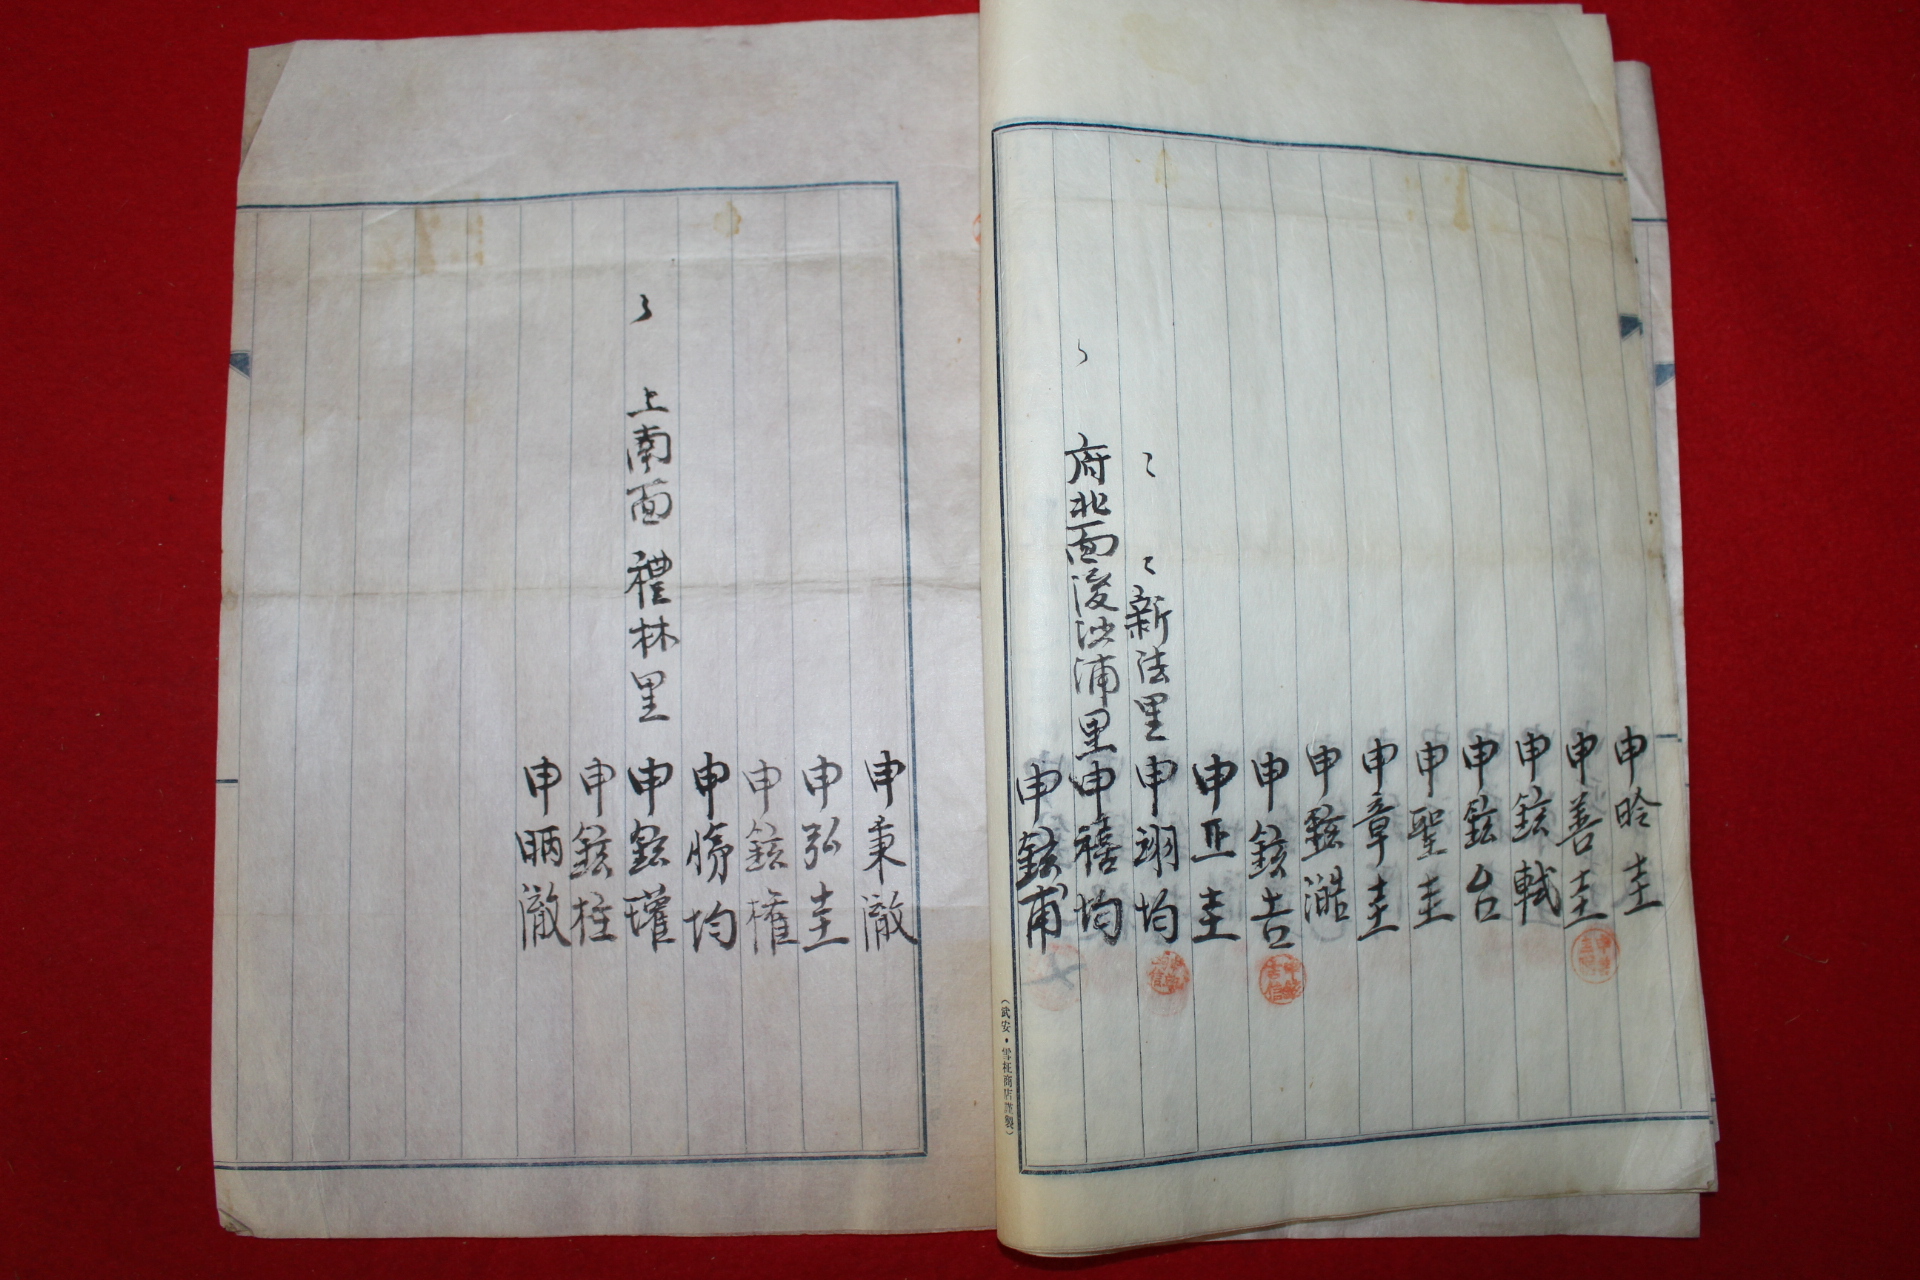 申昤圭
申善圭
申鉉軾
申鉉台
申聖圭
申章圭
申鉉澔
申鉉吉
申正圭
〻 〻 新法里 申翊均
〻 府北面後沙浦里 申禧均
申鉉甫
(武安·雪杠商店謹製)
申秉澈
申弘圭
申鉉權
申勝均
〻 上南面 禮林里 申鉉瓘
申鉉柱
申昞澈